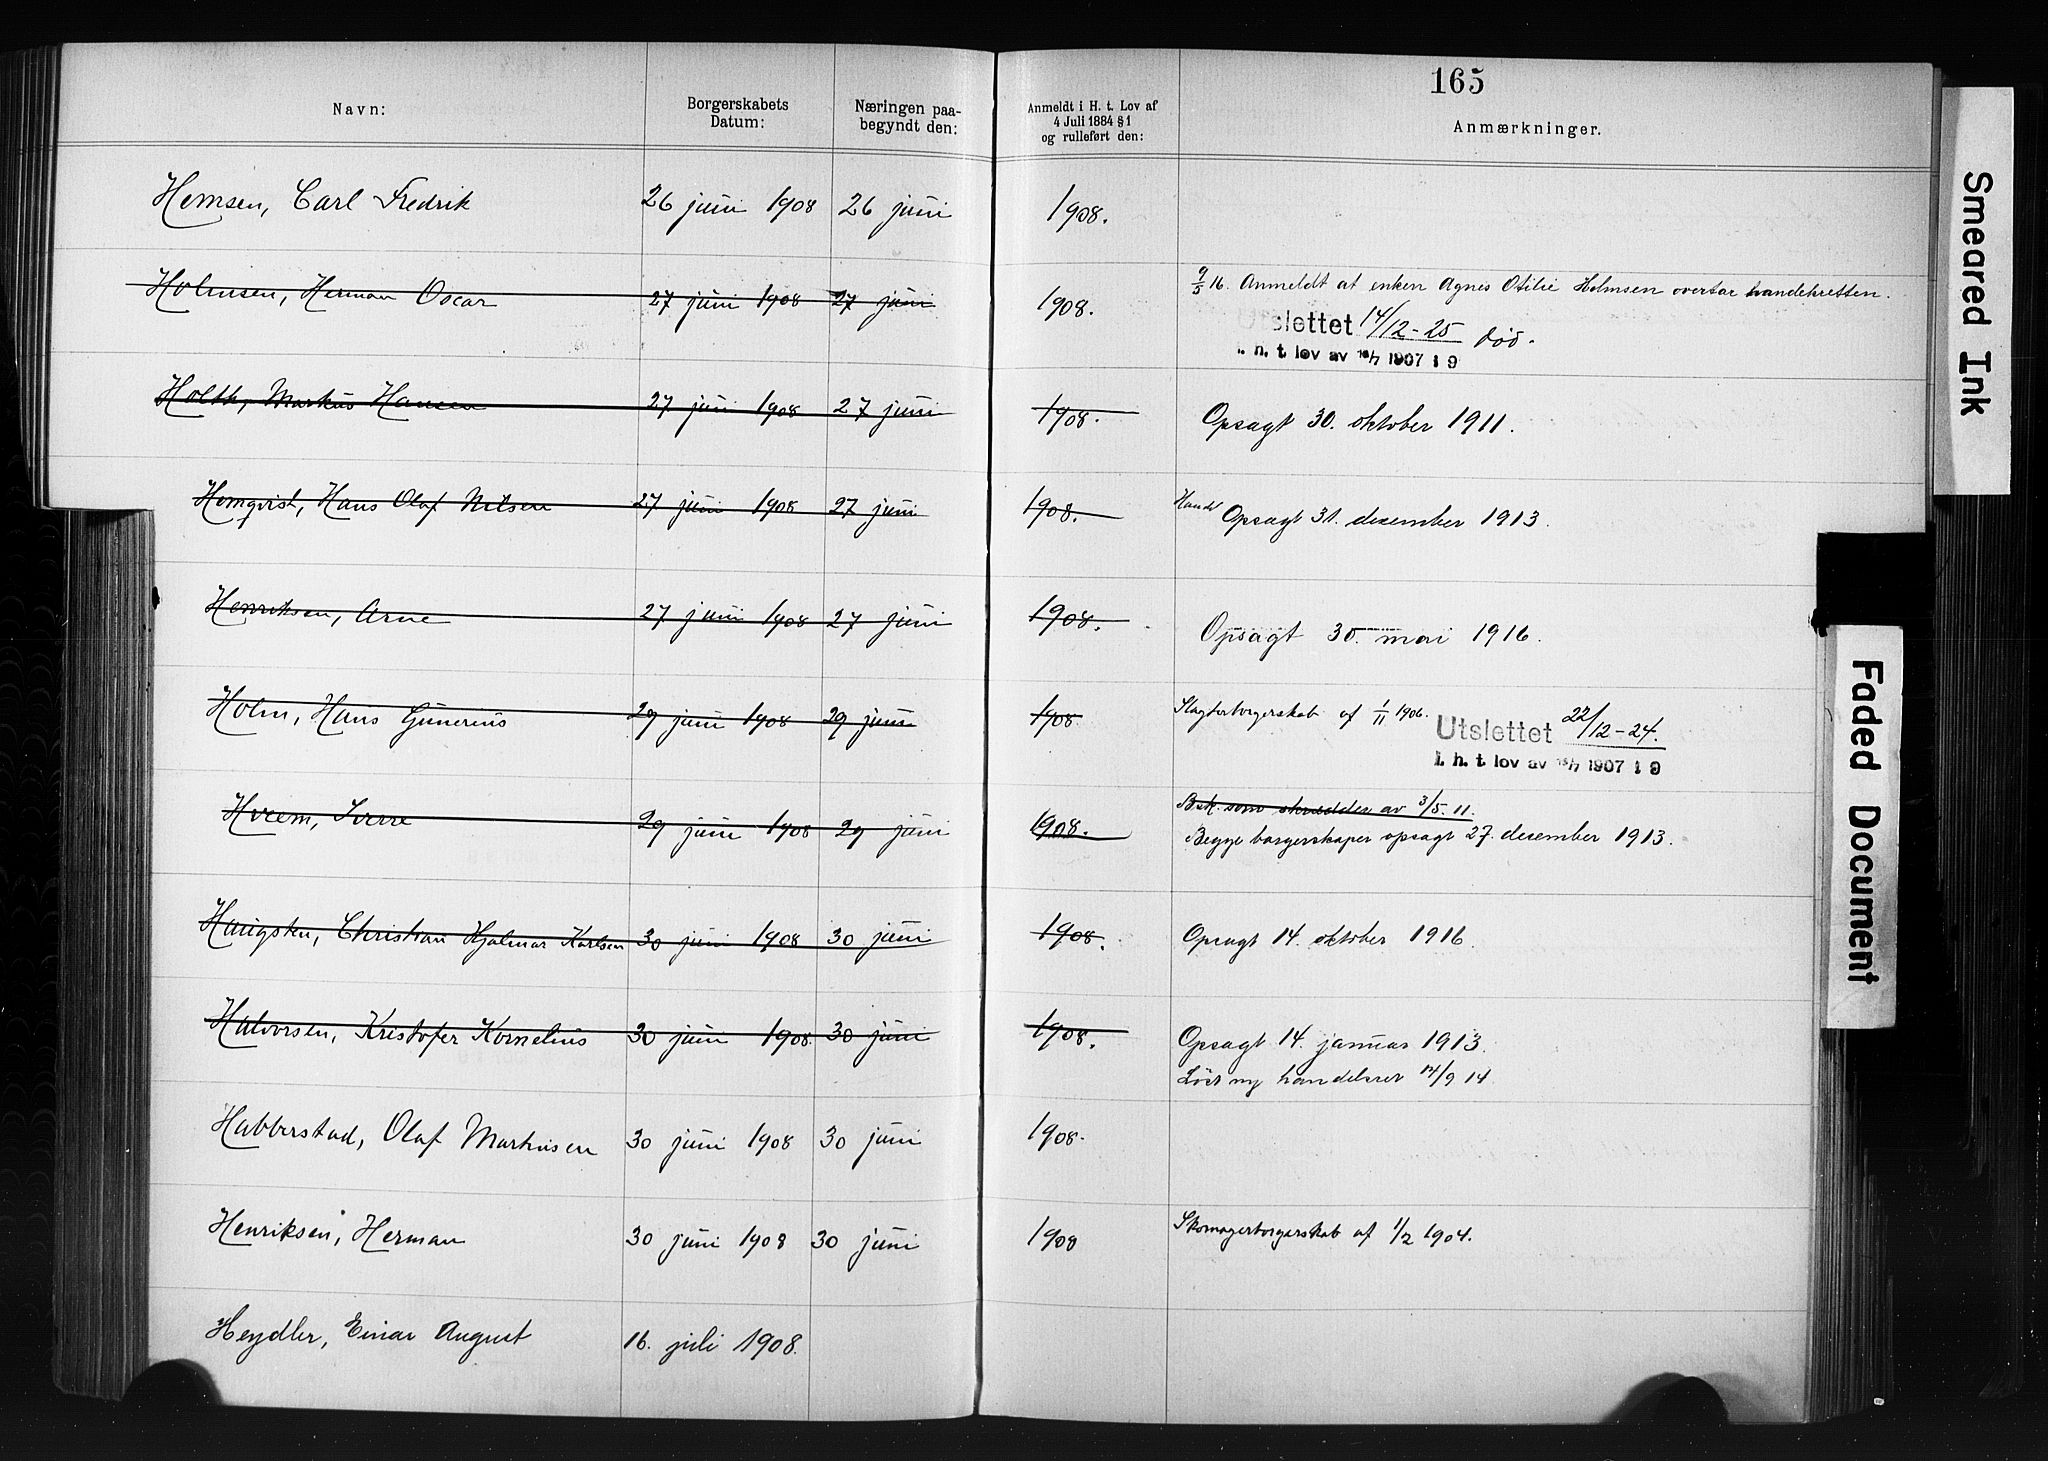 165
Navn: Borgerskabets Datum: Næringen paa-begyndt den: Anmeldt i H. t. Lov af 4 Juli 1884 § 1 og rulleført den: Anmærkninger.
Hemsen, Carl Fredrik 26 juni 1908 26 juni 1908.
Holmsen, Herman Oscar 27 juni 1908 27 juni 1908. 9/5 16. Anmeldt at enken Agnes Otilie Holmsen overtar handelsretten.
Utslettet 14/12-25 død.
i. h. t. lov av 16/7 1907 § 9
Holth, Markus Hansen 27 juni 1908 27 juni 1908. Opsagt 30. oktober 1911.
Homqvist, Hans Olaf Nilsen 27 juni 1908 27 juni 1908. Handl Opsagt 31. desember 1913.
Henriksen, Arne 27 juni 1908 27 juni 1908. Opsagt 30. mai 1916.
Holm, Hans Gunerius 29 juni 1908 29 juni 1908 Slagterborgerskab af 1/11 1906. Utslettet 22/12-24.
i. h. t. lov av 16/7 1907 § 9
Hveem, Sverre 29 juni 1908 29 juni 1908. Bsk. som skrædder av 3/5. 11.
Begge borgerskaper opsagt 27. desember 1913.
Haugsten, Christian Hjalmar Karlsen 30 juni 1908 30 juni 1908. Opsagt 14. oktober 1916.
Halvorsen, Kristofer Kornelius 30 juni 1908. 30 juni 1908. Opsagt 14. januar 1913.
Løst ny handelsret /9 14.
Habberstad, Olaf Markusen 30 juni 1908 30 juni 1908.
Henriksen, Herman 30 juni 1908 30 juni 1908 Skomagerborgerskab af 1/2 1904.
Heydler, Einar August 16. juli 1908.
Smeared Ink
Faded Document